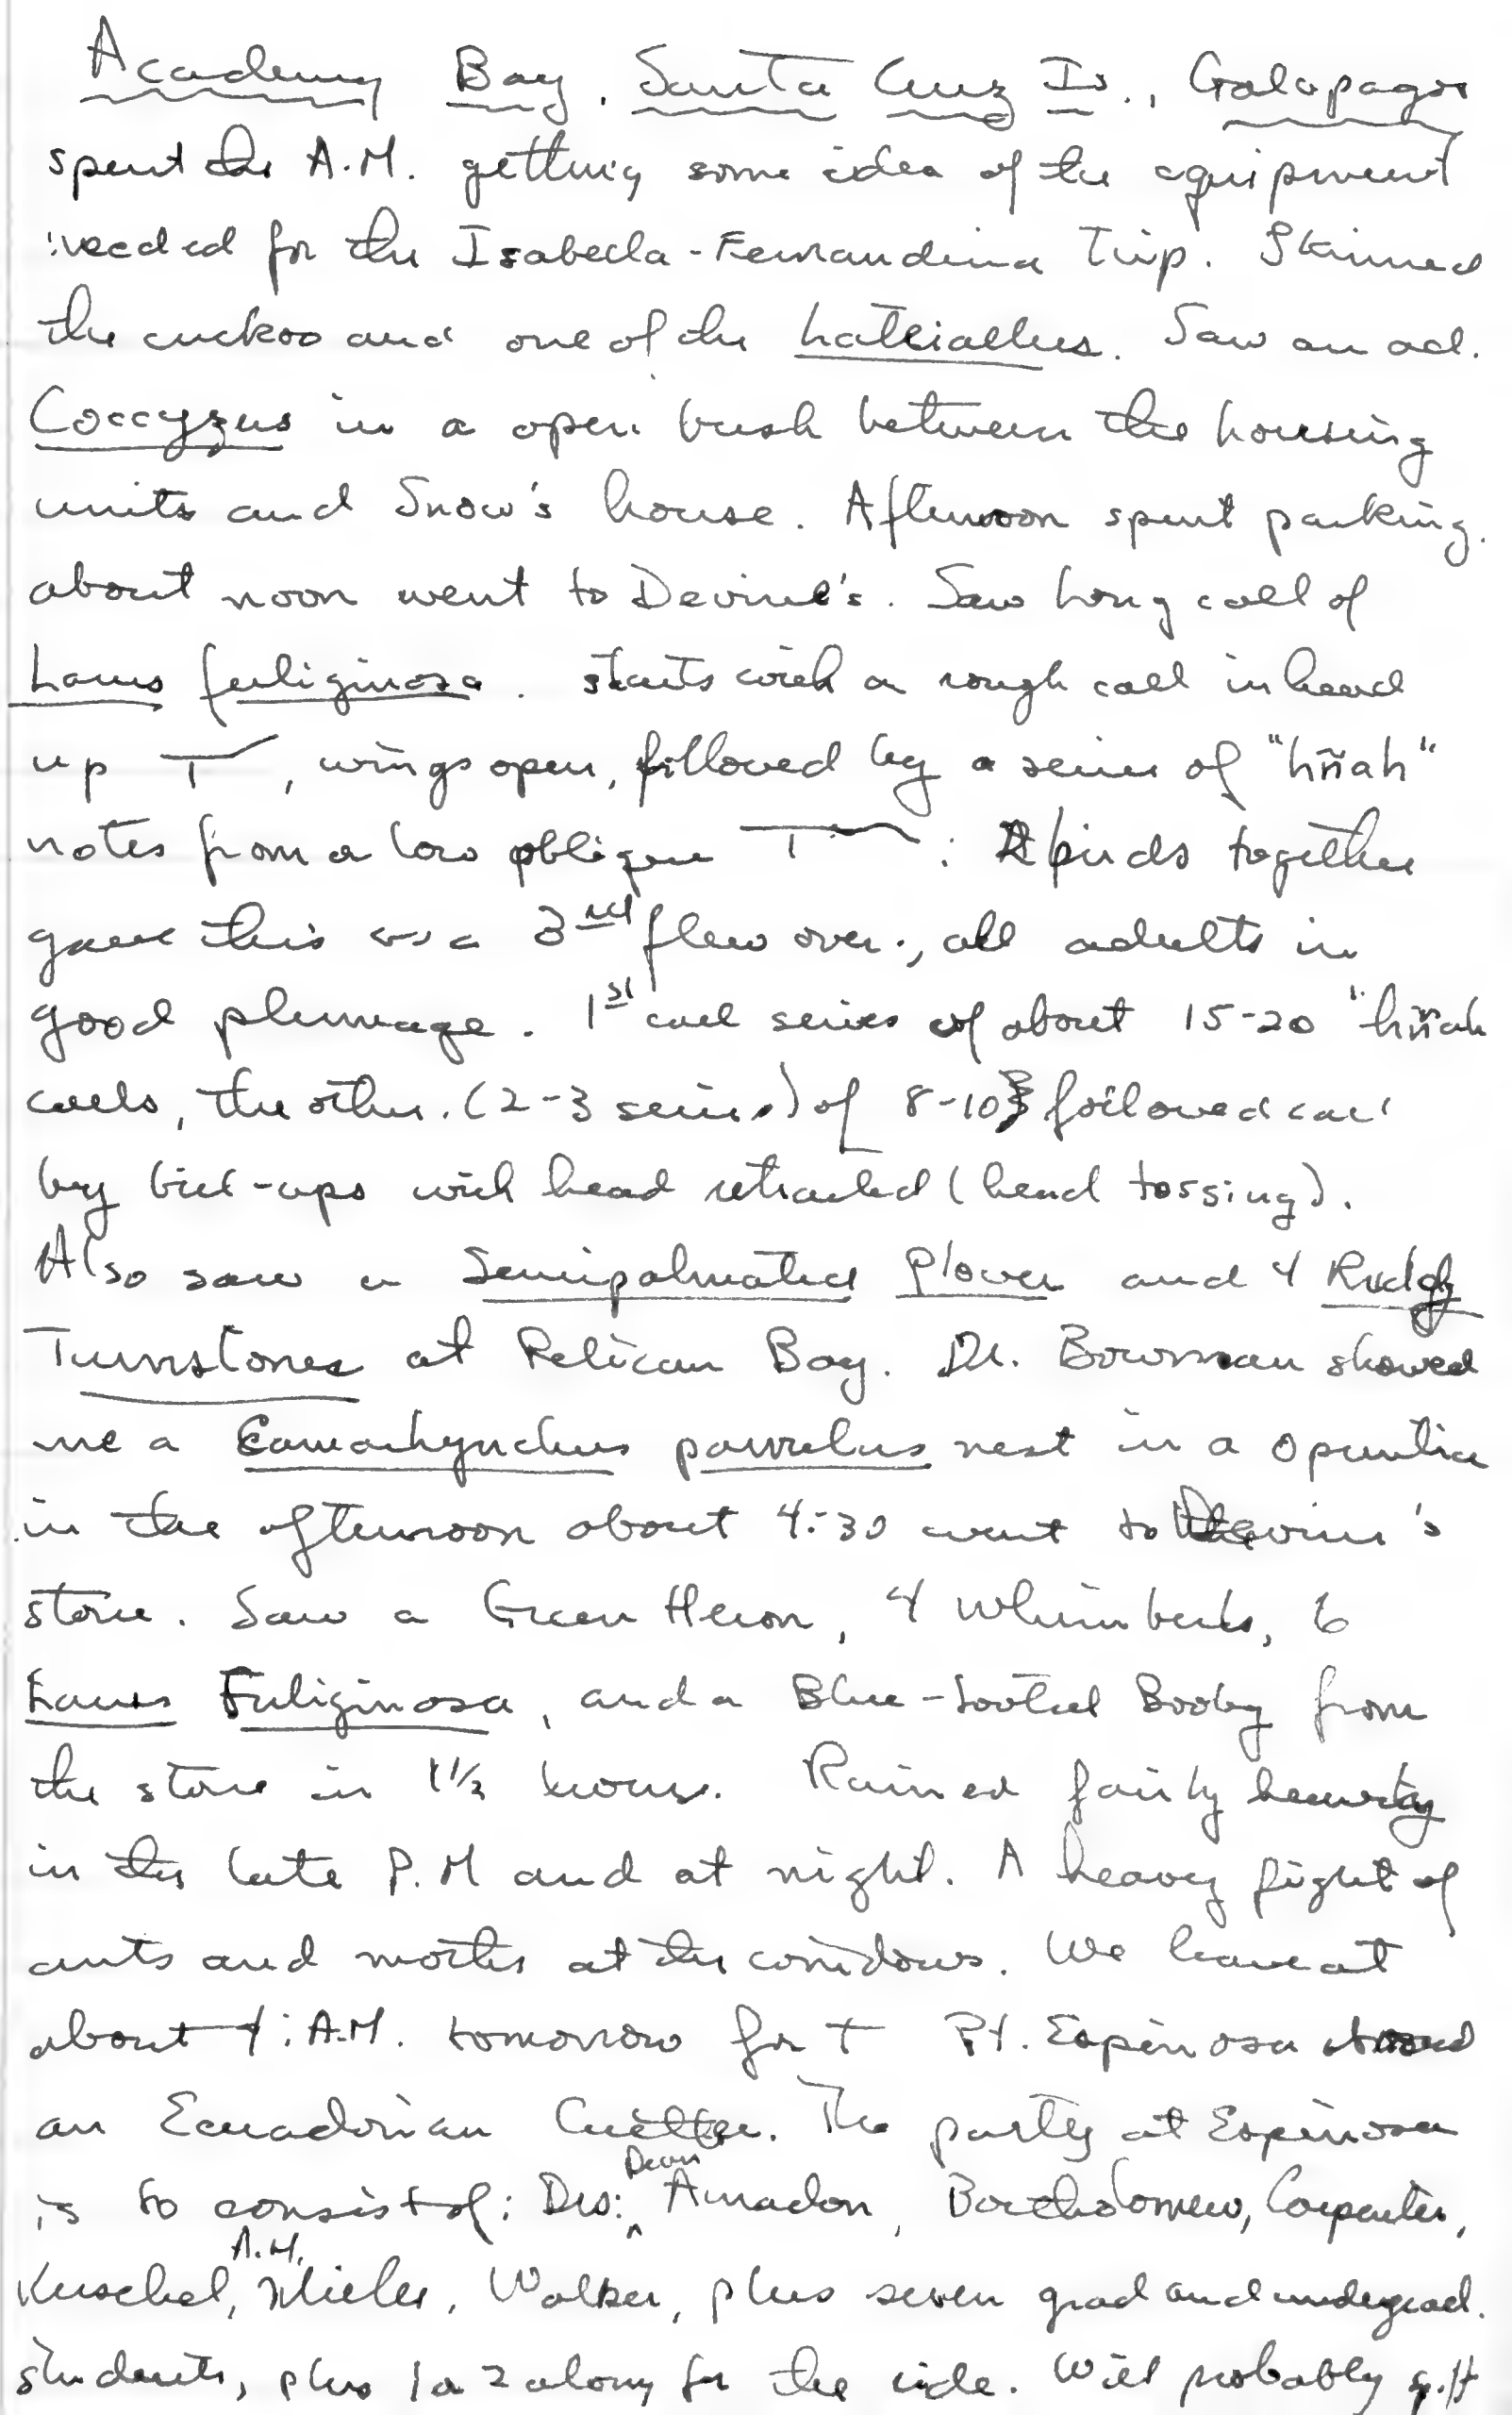 Academy Bay, Santa Cruz Is., Galapagos
spent the A.M. getting some idea of the equipment
needed for the Isabella-Fernandina Trip. Skinned
the cuckoo and one of the Latteiallus. Saw an ad.
Coccyzus in a open bush between the housing
units and Snow's house. Afternoon spent packing.
about noon went to Devine's. Saw Long call of
Larus fuliginosa. starts with a rough call in head
up , wings open, followed by a series of "hñah"
notes from a low oblique : 2 birds together
gave this as a 3rd flew over., all adults in
good plumage. 1st call series of about 15-20 "hñah
calls, the other. (2-3 series) of 8-10 followed
by bill-ups with head retracted (head tossing).
Also saw a Semipalmated Plover and 4 Ruddy
Turnstones at Pelican Bay. Dr. Bowman showed
me a Camarhynchus parvulus nest in a Opuntia
in the afternoon about 4:30 went to Devine's
store. Saw a Green Heron, 4 Whimbrels, 6
Larus Fuliginosa, and a Blue-footed Booby from
the store in 1½ hours. Rained fairly heavily
in the late P.M and at night. A heavy flight of
ants and moths at the windows. We leave at
about 4: A.M. tomorrow for Pt. Espinosa aboard
an Ecuadorian Cutter. The party at Espinosa
is to consist of: Drs: Dean Amadon, Bartholomew, Carpenter,
Kuschel, A.H. Miller, Walker, plus seven grad and undergrad.
students, plus 1 or 2 along for the ride. Will probably split